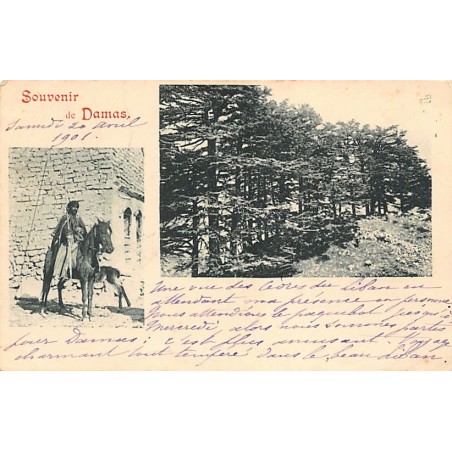 Souvenir
de Damas.
Samedi 20 avril
1901.
Une vue des Cèdres du Liban en
attendant ma présence en personne.
Nous attendions le paquebot jusqu'à
Mercredi, alors nous sommes partis
pour Damas; c'est plus amusant.
charmant tout dans le beau Liban.